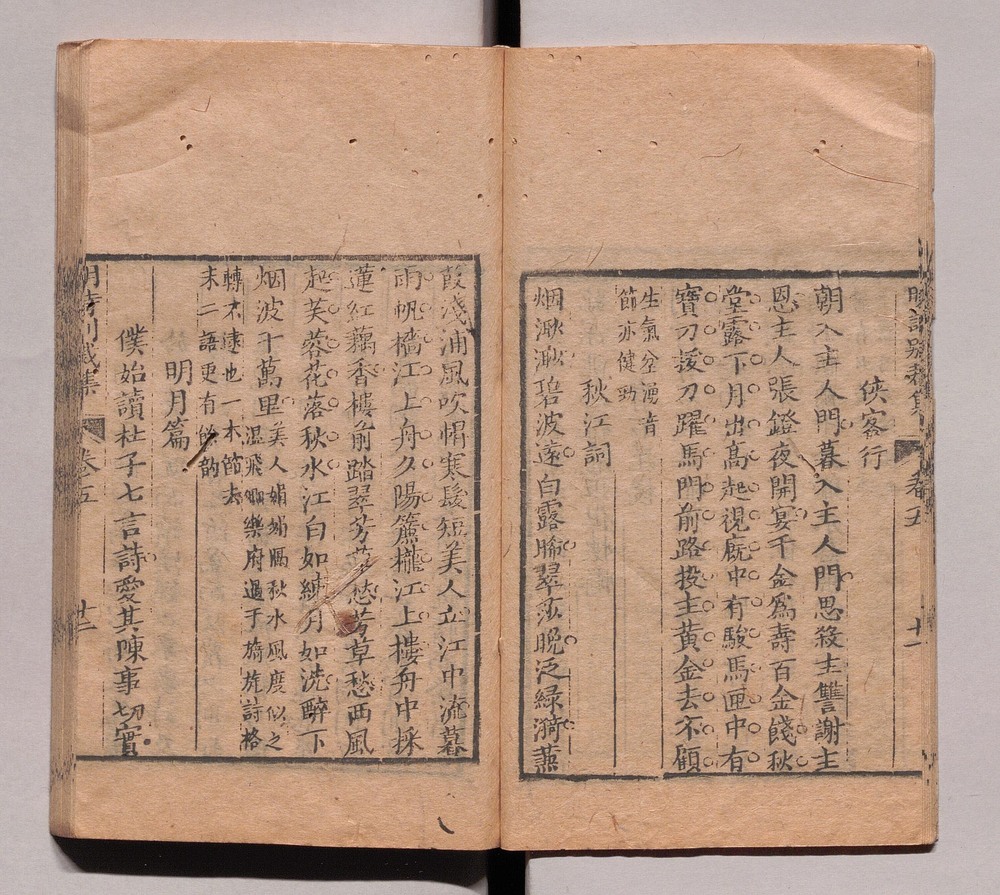 明詩別裁集 卷五 十一
俠客行
朝入主人門暮入主人門思殺主讐謝主
恩主人張鐙夜開宴千金爲壽百金餞秋
堂露下月出高起視廐中有駿馬匣中有
寶刀拔刀躍馬門前路投主黃金去不顧
生氣坌湧音
節亦健勁
秋江詞
烟渺渺碧波遠白露晞翠莎晚泛綠漪蒹
葭淺浦風吹帽寒髮短美人立江中流暮
雨帆檣江上舟夕陽簾櫳江上樓舟中採
蓮紅藕香樓前踏翠芳草愁芳草愁西風
起芙蓉花落秋水江白如練月如洗醉下
烟波千萬里
美人娟娟隔秋水風度似之
温飛卿樂府過于旖旎詩格
轉不逮也一本節去
末二語更有餘韵
明月篇
僕始讀杜子七言詩愛其陳事切實
明詩別裁集 卷五